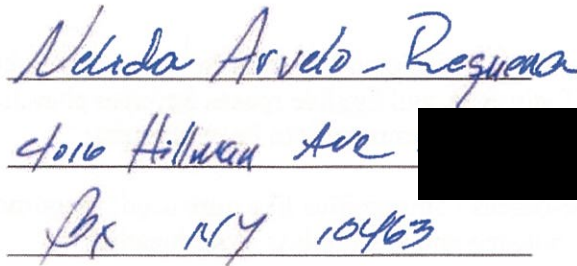 Nelida Arvelo-Requena
4016 Hillman Ave
Bx NY 10463